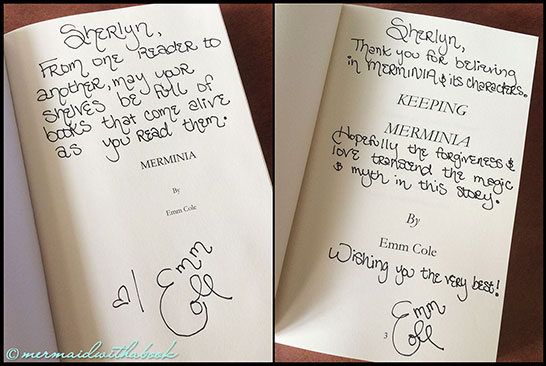 Sherlyn,
From one reader to
another, may your
shelves be full of
books that come alive
as you read them.
MERMINIA
By
Emm Cole
Emm
Cole
Sherlyn,
Thank you for believing
in MERMINIA & its characters.
KEEPING
MERMINIA
Hopefully the forgiveness &
love transcend the magic
& myth in this story.
By
Emm Cole
Wishing you the very best!
Emm
Cole
3
© mermaidwithabook